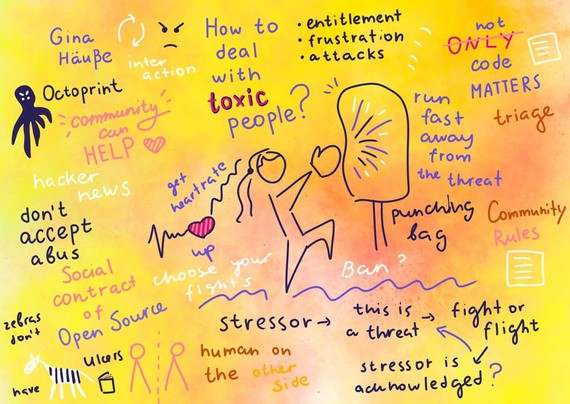 Gina
Häuße
inter
action
How to
deal
with
toxic
people?
• entitlement
• frustration
• attacks
not
ONLY
code
MATTERS
triage
Octoprint
community
can
HELP
hacker
news
don't
accept
abus
get
heartrate
up
run
fast
away
from
the threat
punching
bag
Community
Rules
choose your
fights
Ban?
Social
contract
of
Open Source
zebras
don't
have
ulcers
human on
the other
side
stressor →
this is
a threat →
fight or
flight
stressor is
acknowledged?